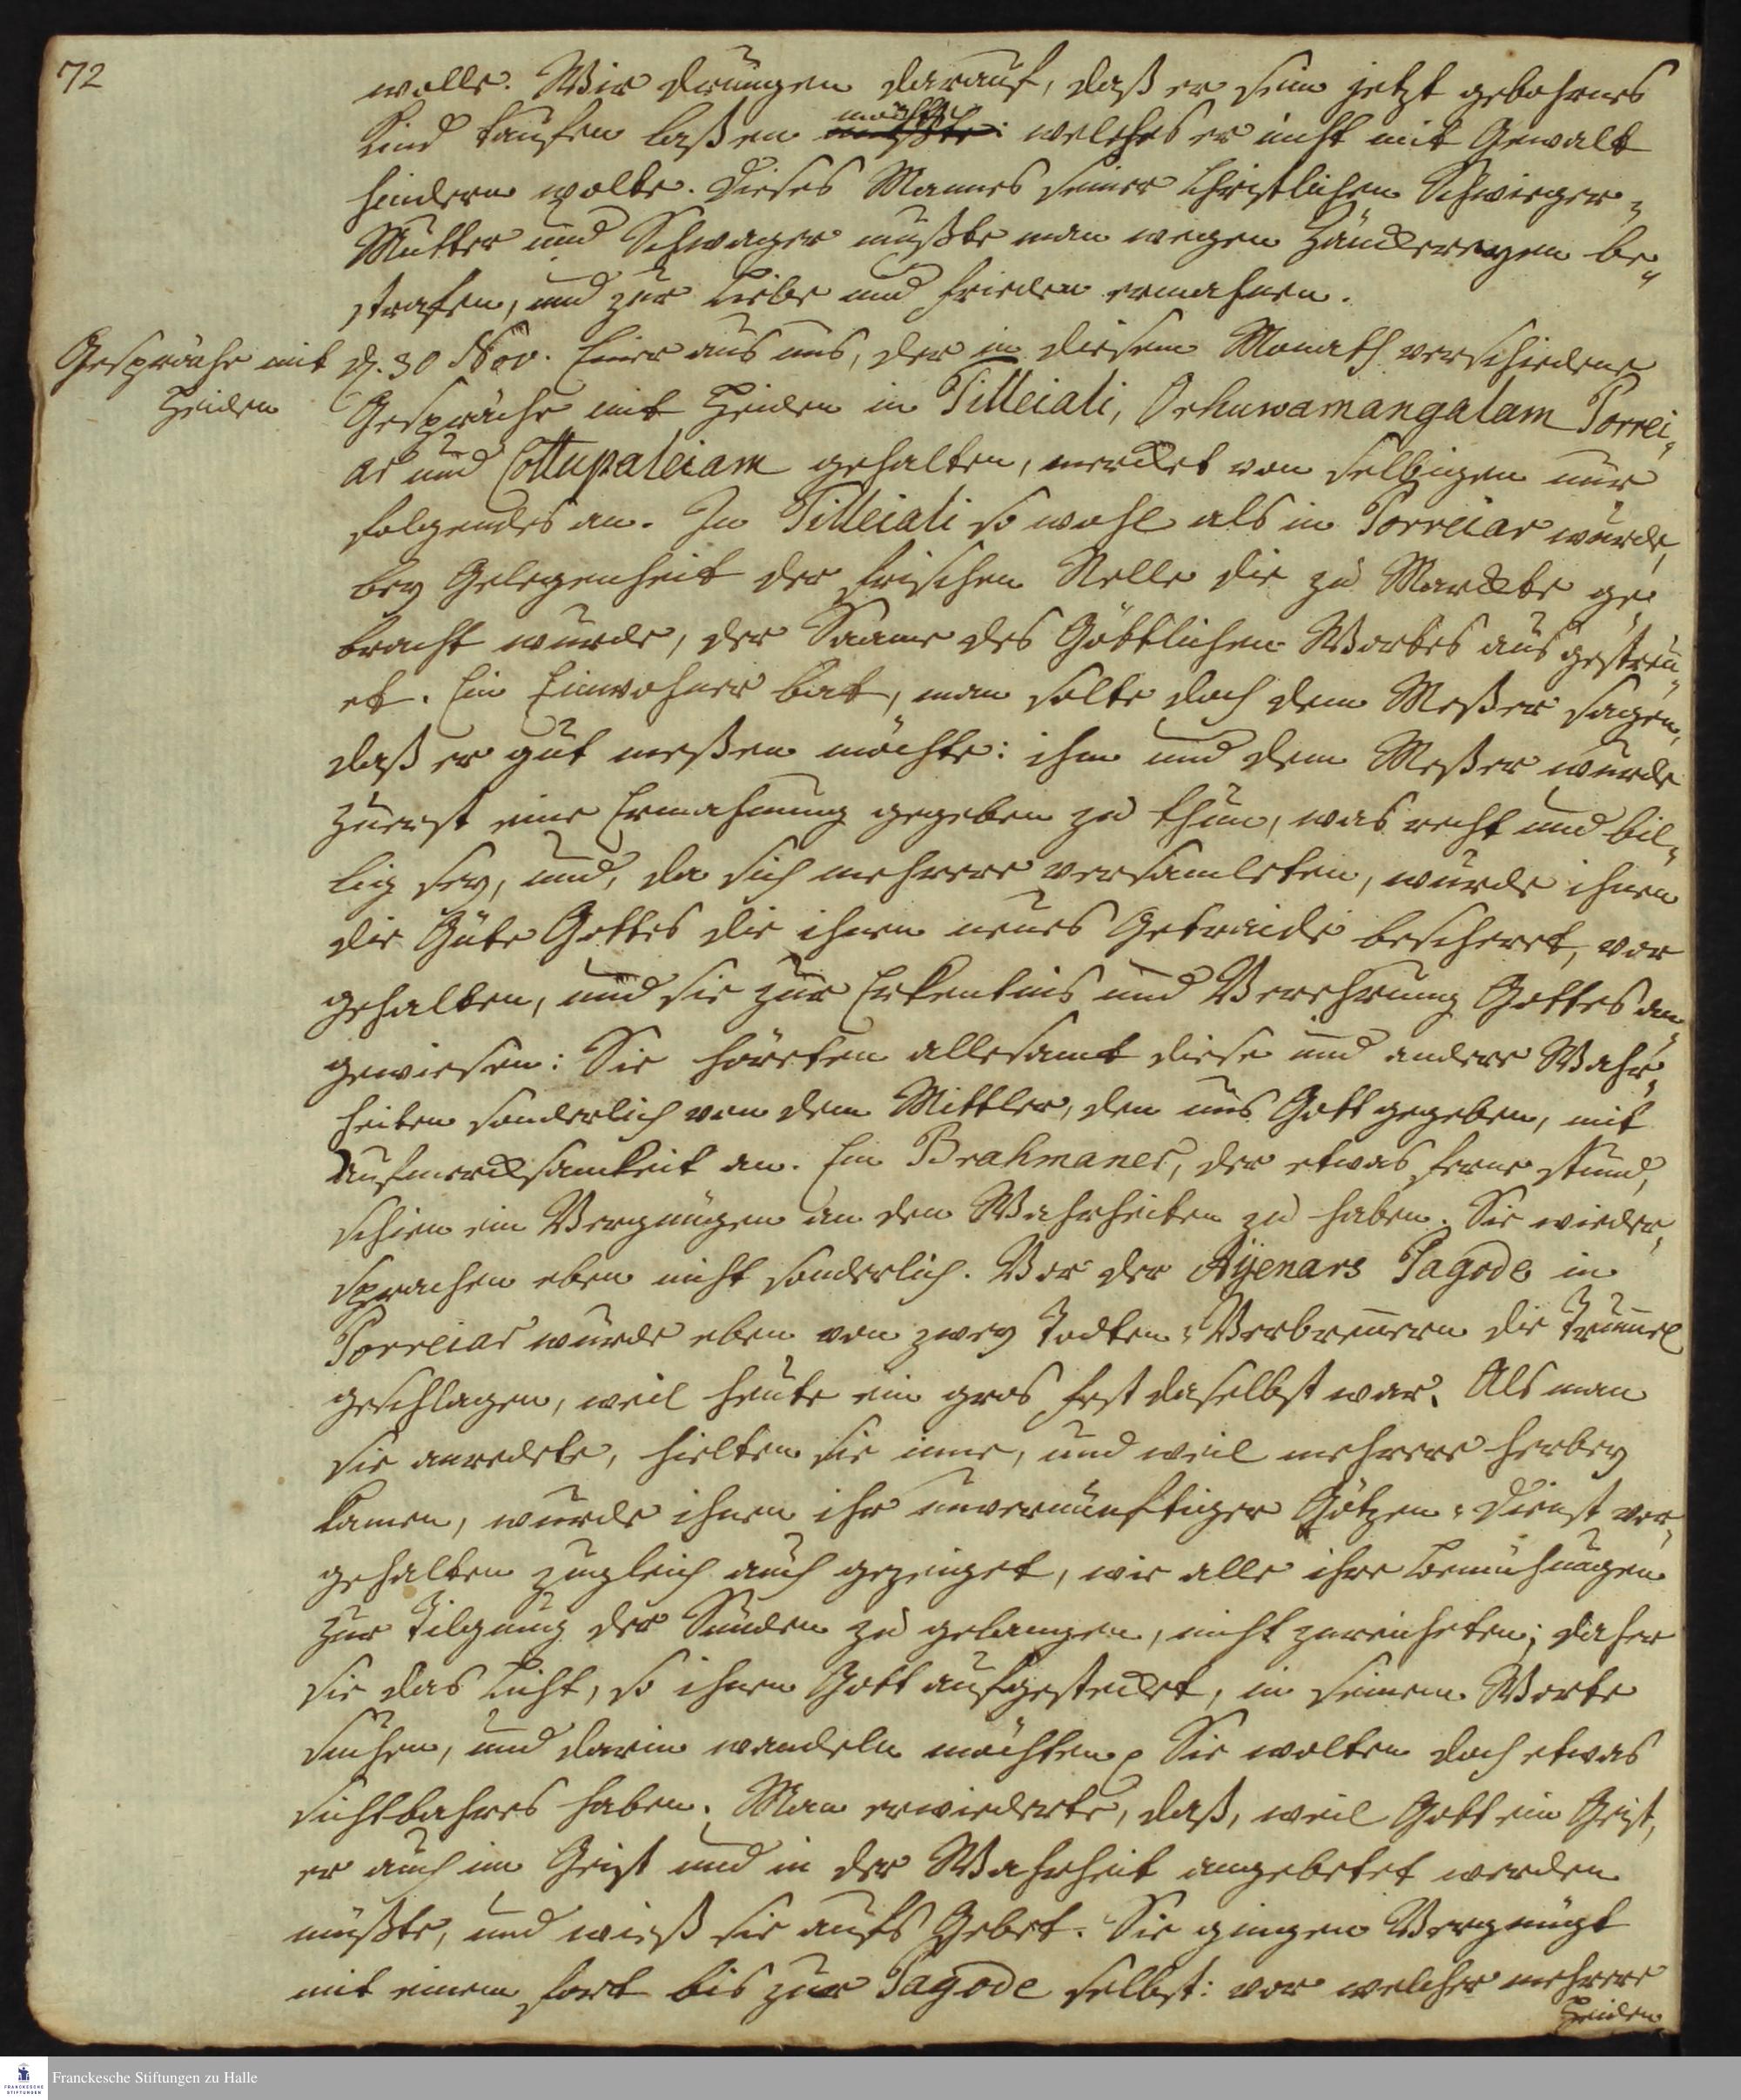 72
wolle. Wir drungen darauf, daß er sein jetzt gebohrnes
Kind taufen laßen möchte: welches er nicht mit Gewalt
hindern wolte. Dieses Mannes seiner Christlichen Schwieger-
Mutter und Schwager mußte man wegen Zänckereyen be-
strafen, und zur Liebe und Frieden ermahnen.
Gespräche mit
Heiden
d. 30 Nov. Einer aus uns, der in diesem Monath verschiedene
Gespräche mit Heiden in Tilleiali, Orhuwamangalam Porrei-
ar und Cottupaleiam gehalten, mercket von selbigen nur
folgendes an. In Tilleiali so wohl als in Porreiar wurde,
bey Gelegenheit der frischen Nelle die zu Marckte ge-
bracht wurde, der Saame des Göttlichen Wortes ausgestreu-
et. Ein Einwohner bat, man solte doch dem Meßer sagen,
daß er gut meßen möchte: ihm und dem Meßer wurde
zuerst eine Ermahnung gegeben zu thun, was recht und bil-
lig sey, und, da sich mehrere versamleten, wurde ihnen
die Güte Gottes die ihnen neues Getraide bescheret, vor
gehalten, und sie zur Erkentnis und Verehrung Gottes an-
gewiesen: Sie höreten allesamt diese und andere Wahr-
heiten sonderlich von dem Mittler, den uns Gott gegeben, mit
Aufmercksamkeit an. Ein Brahmaner, der etwas ferne stund,
schien ein Vergnügen an den Wahrheiten zu haben. Sie wieder-
sprachen eben nicht sonderlich. Vor der Aÿenars Pagode in
Porreiar wurde eben von zwey Todten-Verbrennern die Trummel
geschlagen, weil heute ein gros Fest daselbst war. Als man
sie anredete, hielten sie inne, und weil mehrere herbey
kamen, wurde ihnen ihr unvernünftiger Götzen-Dienst vor-
gehalten zugleich auch gezeiget, wie alle ihre Bemühungen
zur Tilgung der Sünden zu gelangen, nicht zureicheten; daher
sie das Licht, so ihnen Gott aufgestecket, in seinem Worte
suchen, und darin wandeln möchten. Sie wolten doch etwas
sichtbahres haben. Man erwiederte, daß, weil Gott ein Geist,
er auch im Geist und in der Wahrheit angebetet werden
müßte, und wieß sie aufs Gebet. Sie gingen Vergnügt
mit einem fort bis zur Pagode selbst: vor welcher mehrere
Heiden
Franckesche Stiftungen zu Halle
FRANCKESCHE
STIFTUNGEN